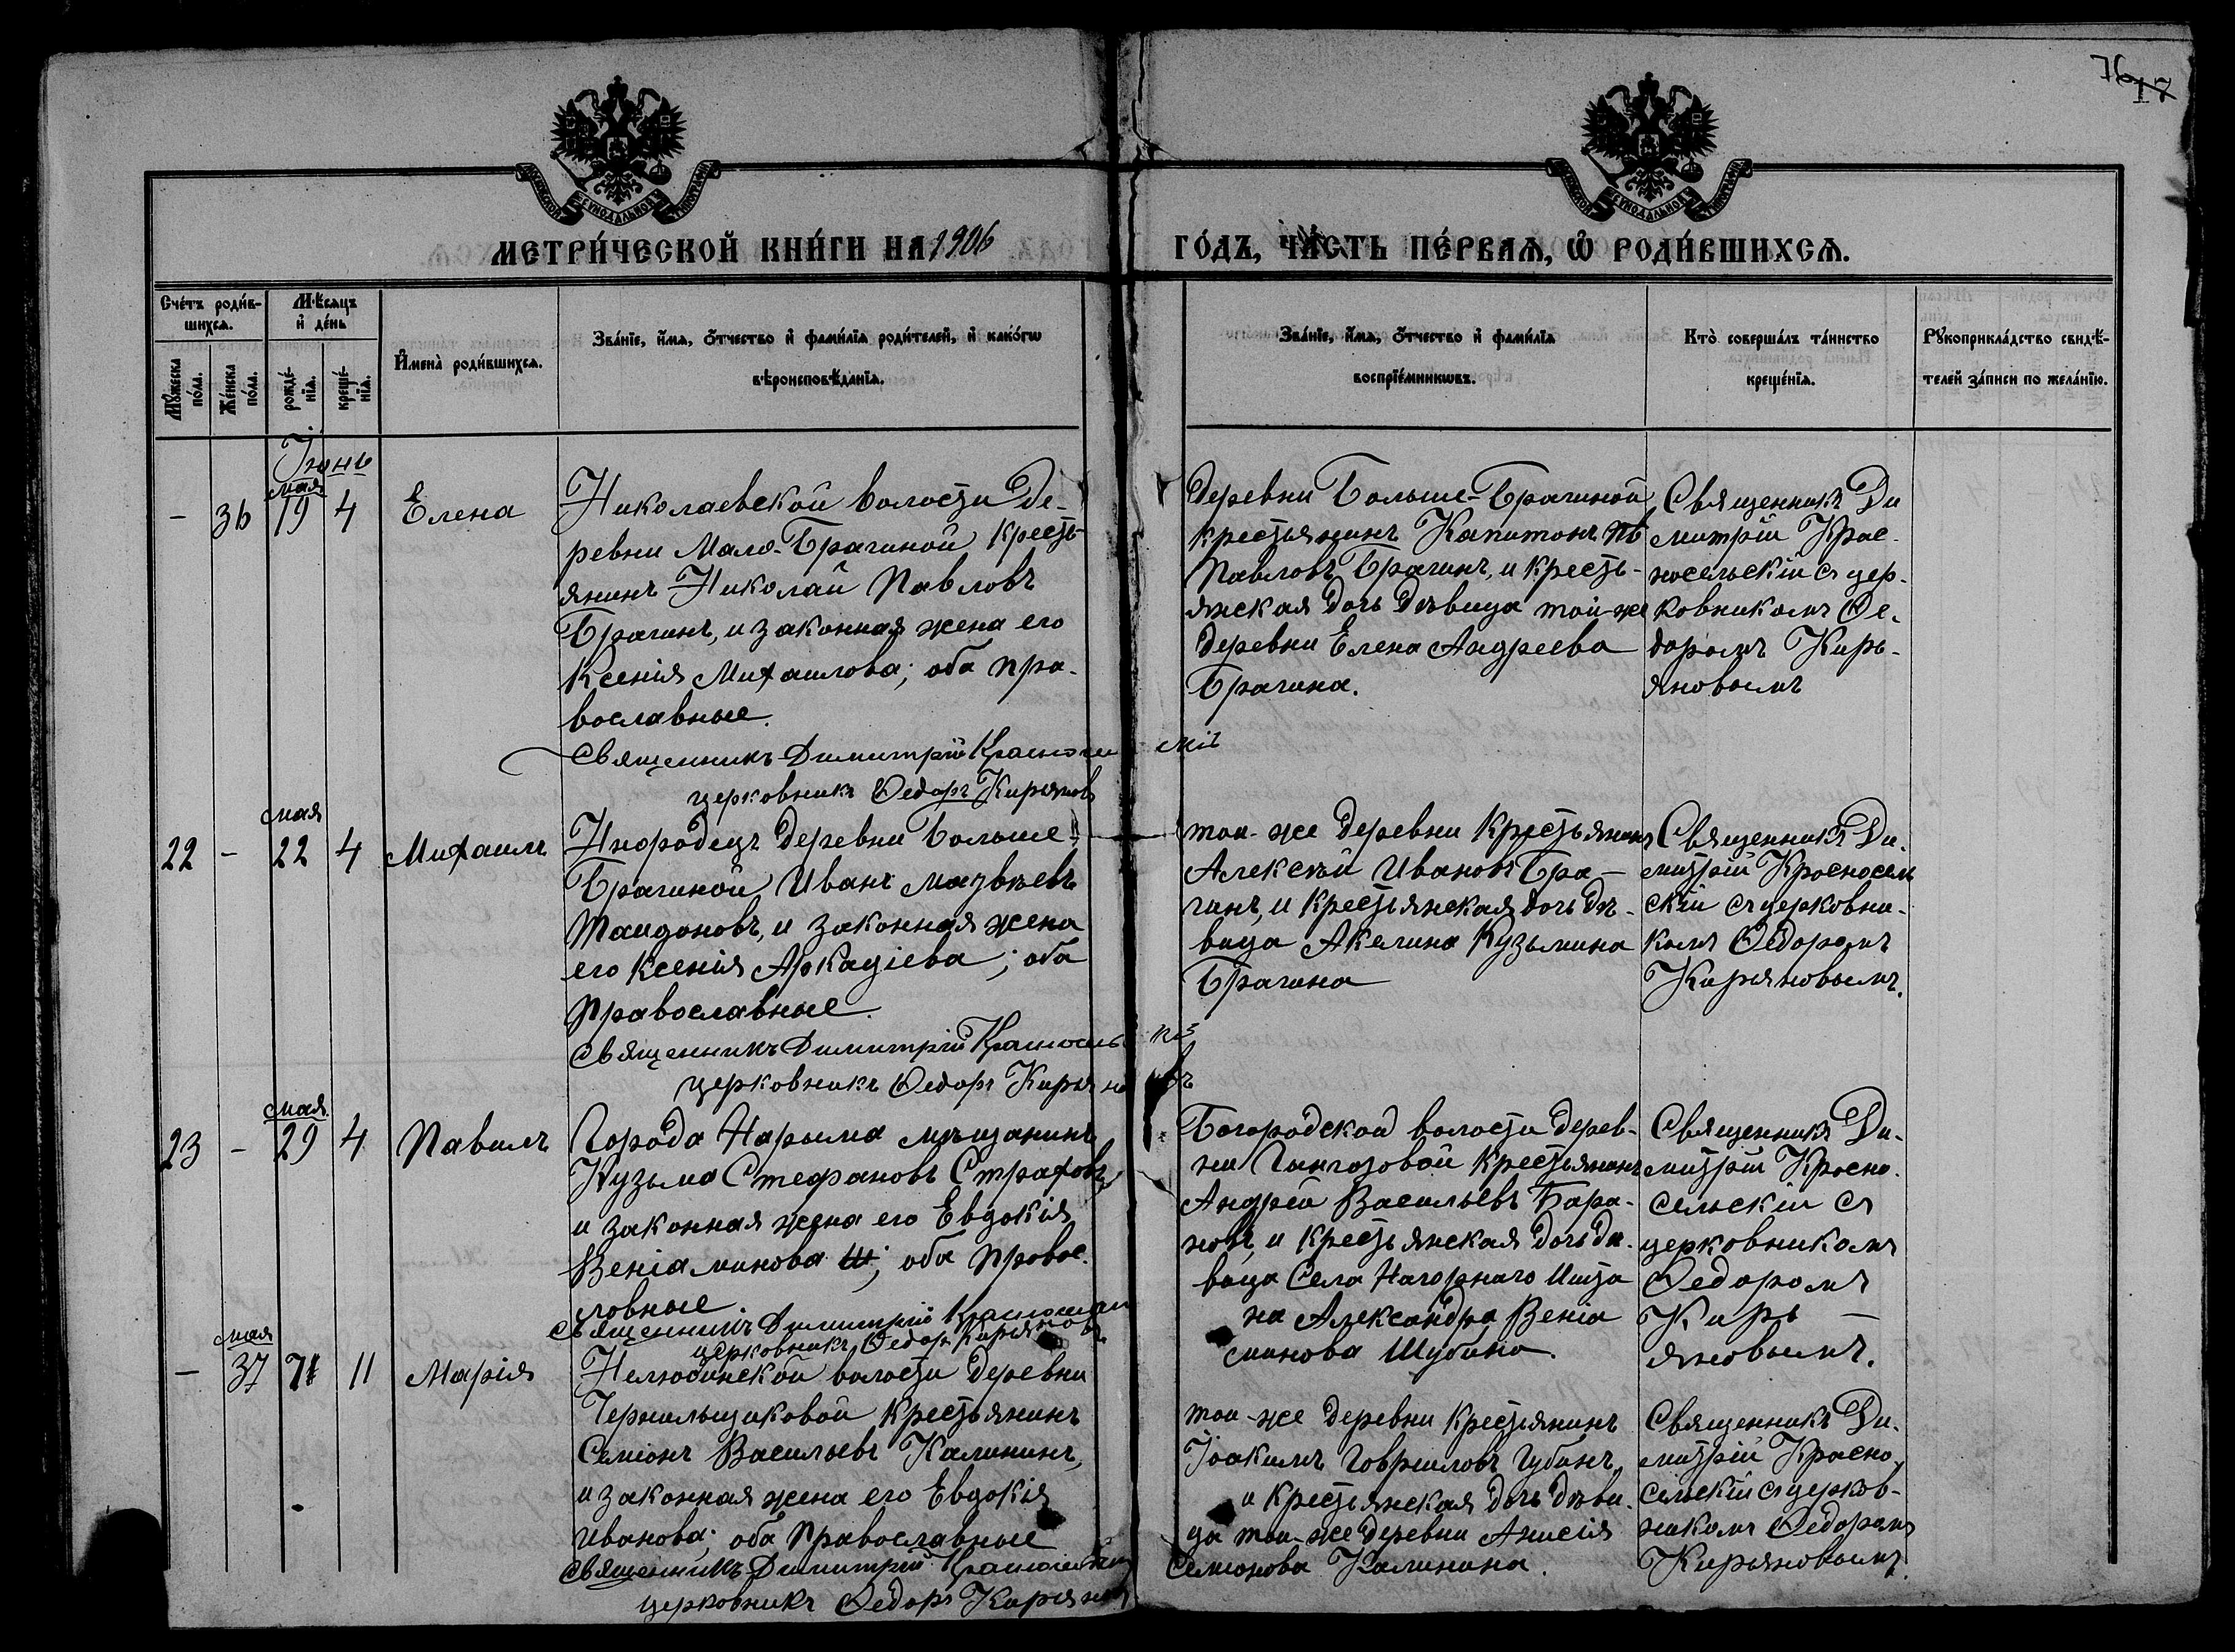 7617
МОСКОВСКОЙ СѴНОДАЛЬНОЙ ТИПОГРАФІИ
МОСКОВСКОЙ СѴНОДАЛЬНОЙ ТИПОГРАФІИ
МЕТРИ́ЧЕСКОЙ КНИ́ГИ НА 1906 ГО́ДЪ, ЧА́СТЬ ПЕ́РВАѦ, Ѡ РОДИ́ВШИХСѦ.
Сче́тъ роди́в-
шихсѧ.
Мѣ́сѧцъ
и҆ де́нь
Мꙋ́жеска
по́ла.
Же́нска
по́ла.
рожде́-
нїѧ.
креще́-
нїѧ.
И҆мена̀ роди́вшихсѧ.
Зва́нїе, и҆́мѧ, ѻ҆́тчество и҆ фами́лїѧ роди́телей, и҆ како́гѡ
вѣроисповѣ́данїѧ.
Зва́нїе, и҆́мѧ, ѻ҆́тчество и҆ фами́лїѧ
воспрїе́мникѡвъ.
Кто̀ соверша́лъ та́инство
креще́нїѧ.
Рꙋкоприкла́дство свидѣ́-
телей за́писи по жела́нїю.
Іюнь
мая
– 36 19 4 Елена
Николаевской волости де-
ревни Мало-Брагиной кресть-
янинъ Николай Павловъ
Брагинъ, и законная жена его
Ксенія Михаилова; оба пра-
вославные.
Священникъ Димитрій Красносельскій
церковникъ Ѳедоръ Кирьяновъ
деревни Больше-Брагиной
крестьянинъ Капитонъ
Павловъ Брагинъ, и кресть-
янская дочь дѣвица той-же
деревни Елена Андреева
Брагина.
Священникъ Ди
митрій Крас-
носельскій съ цер-
ковникомъ Ѳе-
доромъ Кирь-
яновымъ
мая
22 – 22 4 Михаилъ
Инородецъ деревни Больше-
Брагиной Иванъ Матвѣевъ
Таидоновъ, и законная жена
его Ксенія Аркадіева; оба
православные.
Священникъ Димитрій Красносельскій
церковникъ Ѳедоръ Кирьяновъ
той-же деревни крестьянинъ
Алексѣй Ивановъ Бра-
гинъ, и крестьянская дочь дѣ-
вица Акелина Кузьмина
Брагина
Священникъ Ди-
митрій Красносель
скій съ церковни-
комъ Ѳедоромъ
Кирьяновымъ.
мая
23 – 29 4 Павилъ
Города Нарыма мѣщанинъ
Кузьма Стефановъ Страховъ
и законная жена его Евдокія
Веніаминова; оба правос-
лавные
Священникъ Димитрій Красносельскій
церковникъ Ѳедоръ Кирьяновъ
Богородской волости дерев-
ни крестьянинъ
Андрей Васильевъ Бара-
новъ, и крестьянская дочь дѣ-
вица Села Нагорнаго Ишта
на Александра Веніа
минова Шубина.
Священникъ Ди-
митрій Красно-
сельскій съ
церковникомъ
Ѳедоромъ
Кирь –
яновымъ.
мая
– 37 7 11 Марія
Нелюбинской волости деревни
Чернильщиковой крестьянинъ
Семіонъ Васильевъ Калининъ,
и законная жена его Евдокія
Иванова; оба православные
Священникъ Димитрій Красносельскій
церковникъ Ѳедоръ Кирьяновъ
той-же деревни крестьянинъ
Іоакимъ Гавриловъ Губинъ,
и крестьянская дочь дѣви-
ца той-же деревни Анисія
Семіонова Калинина.
Священникъ Ди-
митрій Красно-
сельскій съ церков-
никомъ Ѳедоромъ
Кирьяновымъ.